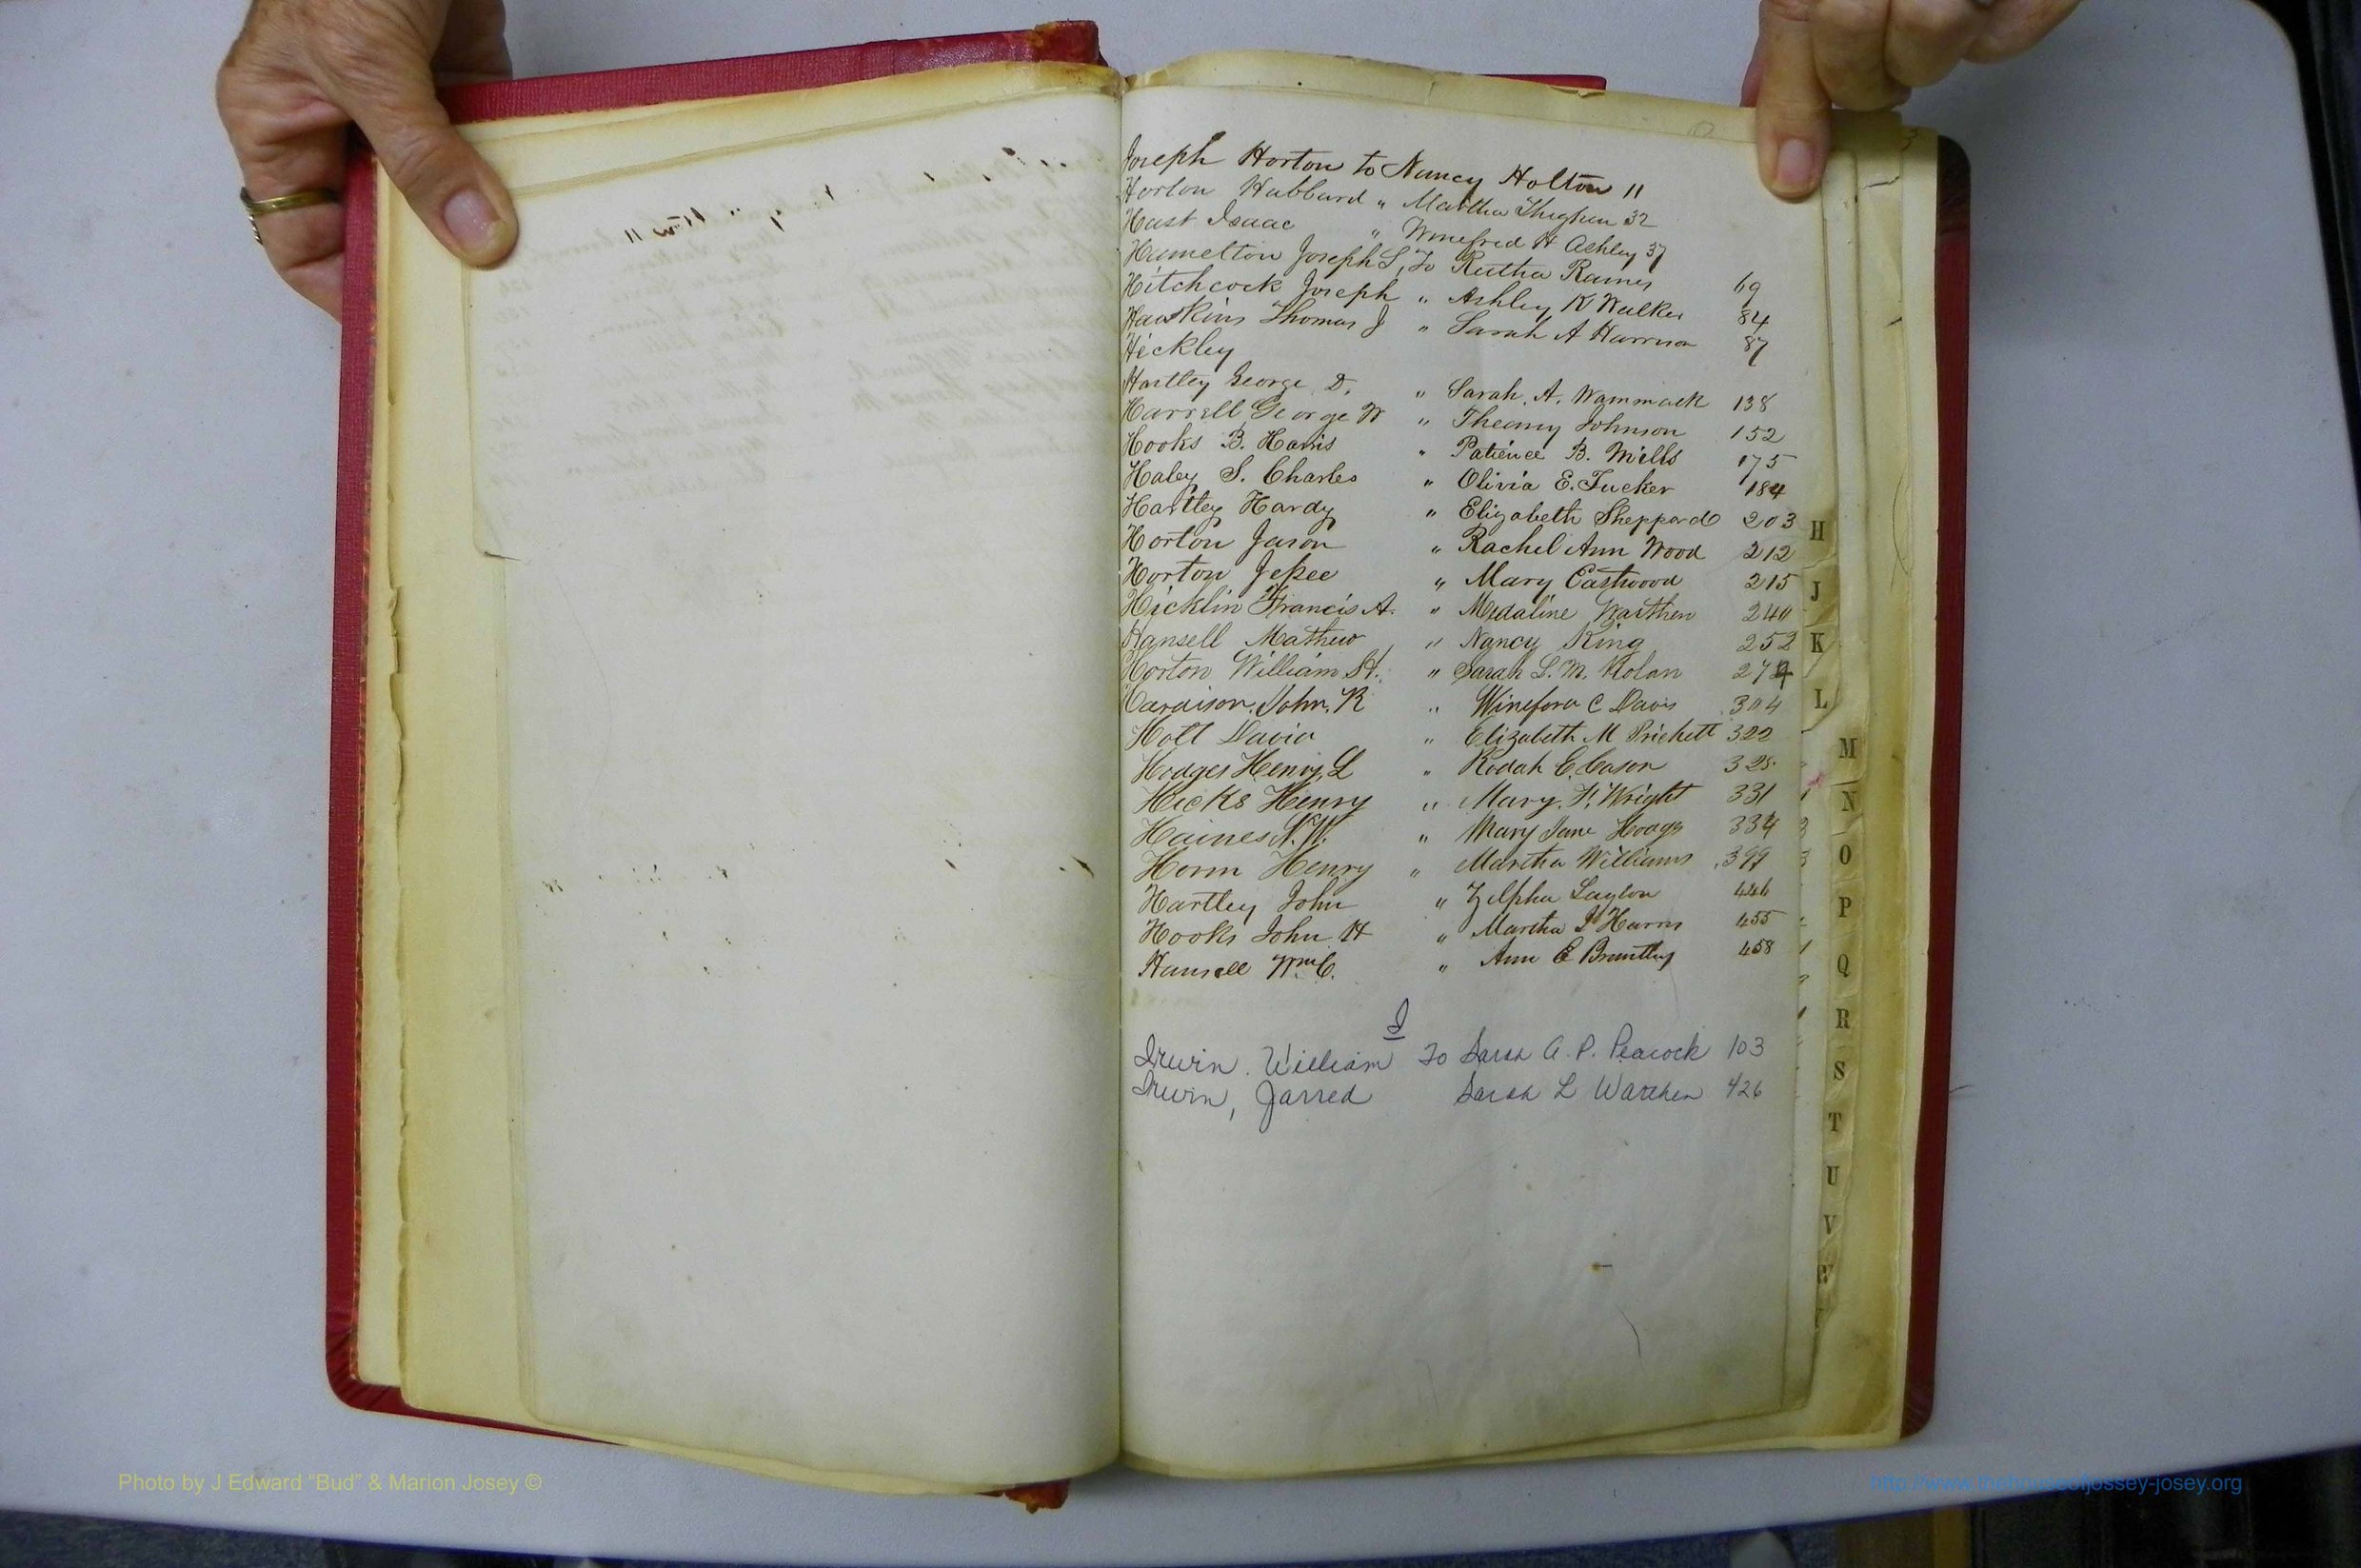 Joseph Horton to Nancy Holton 11
Horton Hubbard " Martha Thighen 32
Hust Isaac " Winefred H Ashley 37
Hamelton Joseph S, To Rutha Raines 69
Hitchcock Joseph " Ashley K Walker 84
Hawkins Thomas J " Sarah A Harrison 87
Hickley
Hartley George D. " Sarah. A. Wammack 138
Harrell George W " Theany Johnson 152
Hooks B. Harris " Patience B. Mills 175
Haley S. Charles " Olivia E. Tucker 184
Hartley Hardy " Elizabeth Sheppard 203
Horton Jason " Rachel Ann Wood 212
Horton Jessee " Mary Eastwood 215
Hicklin Francis A. " Medaline Warthen 240
Hansell Mathew " Nancy King 252
Horton William H. " Sarah L. M. Nolan 274
Hardison. John. R " Winefora C Davis 304
Holt David " Elizabeth M Prichett 322
Hodges Henry, L " Rodah E. Cason 328
Hicks Henry " Mary. F. Wright 331
Haines N. W. " Mary Jane Hodgs 334
Horm Henry " Martha Williams 399
Hartley John " Zilpha Layton 446
Hooks John H " Martha J Harris 455
Hansell Wm C. " Ann E Brantley 458
I
Irwin. William To Sarah A. P. Peacock 103
Irwin, Jarred Sarah L Warthen 426
H
J
K
L
M
N
O
P
Q
R
S
T
U
V
W
Photo by J Edward “Bud” & Marion Josey ©
http://www.thehouseofjossey-josey.org